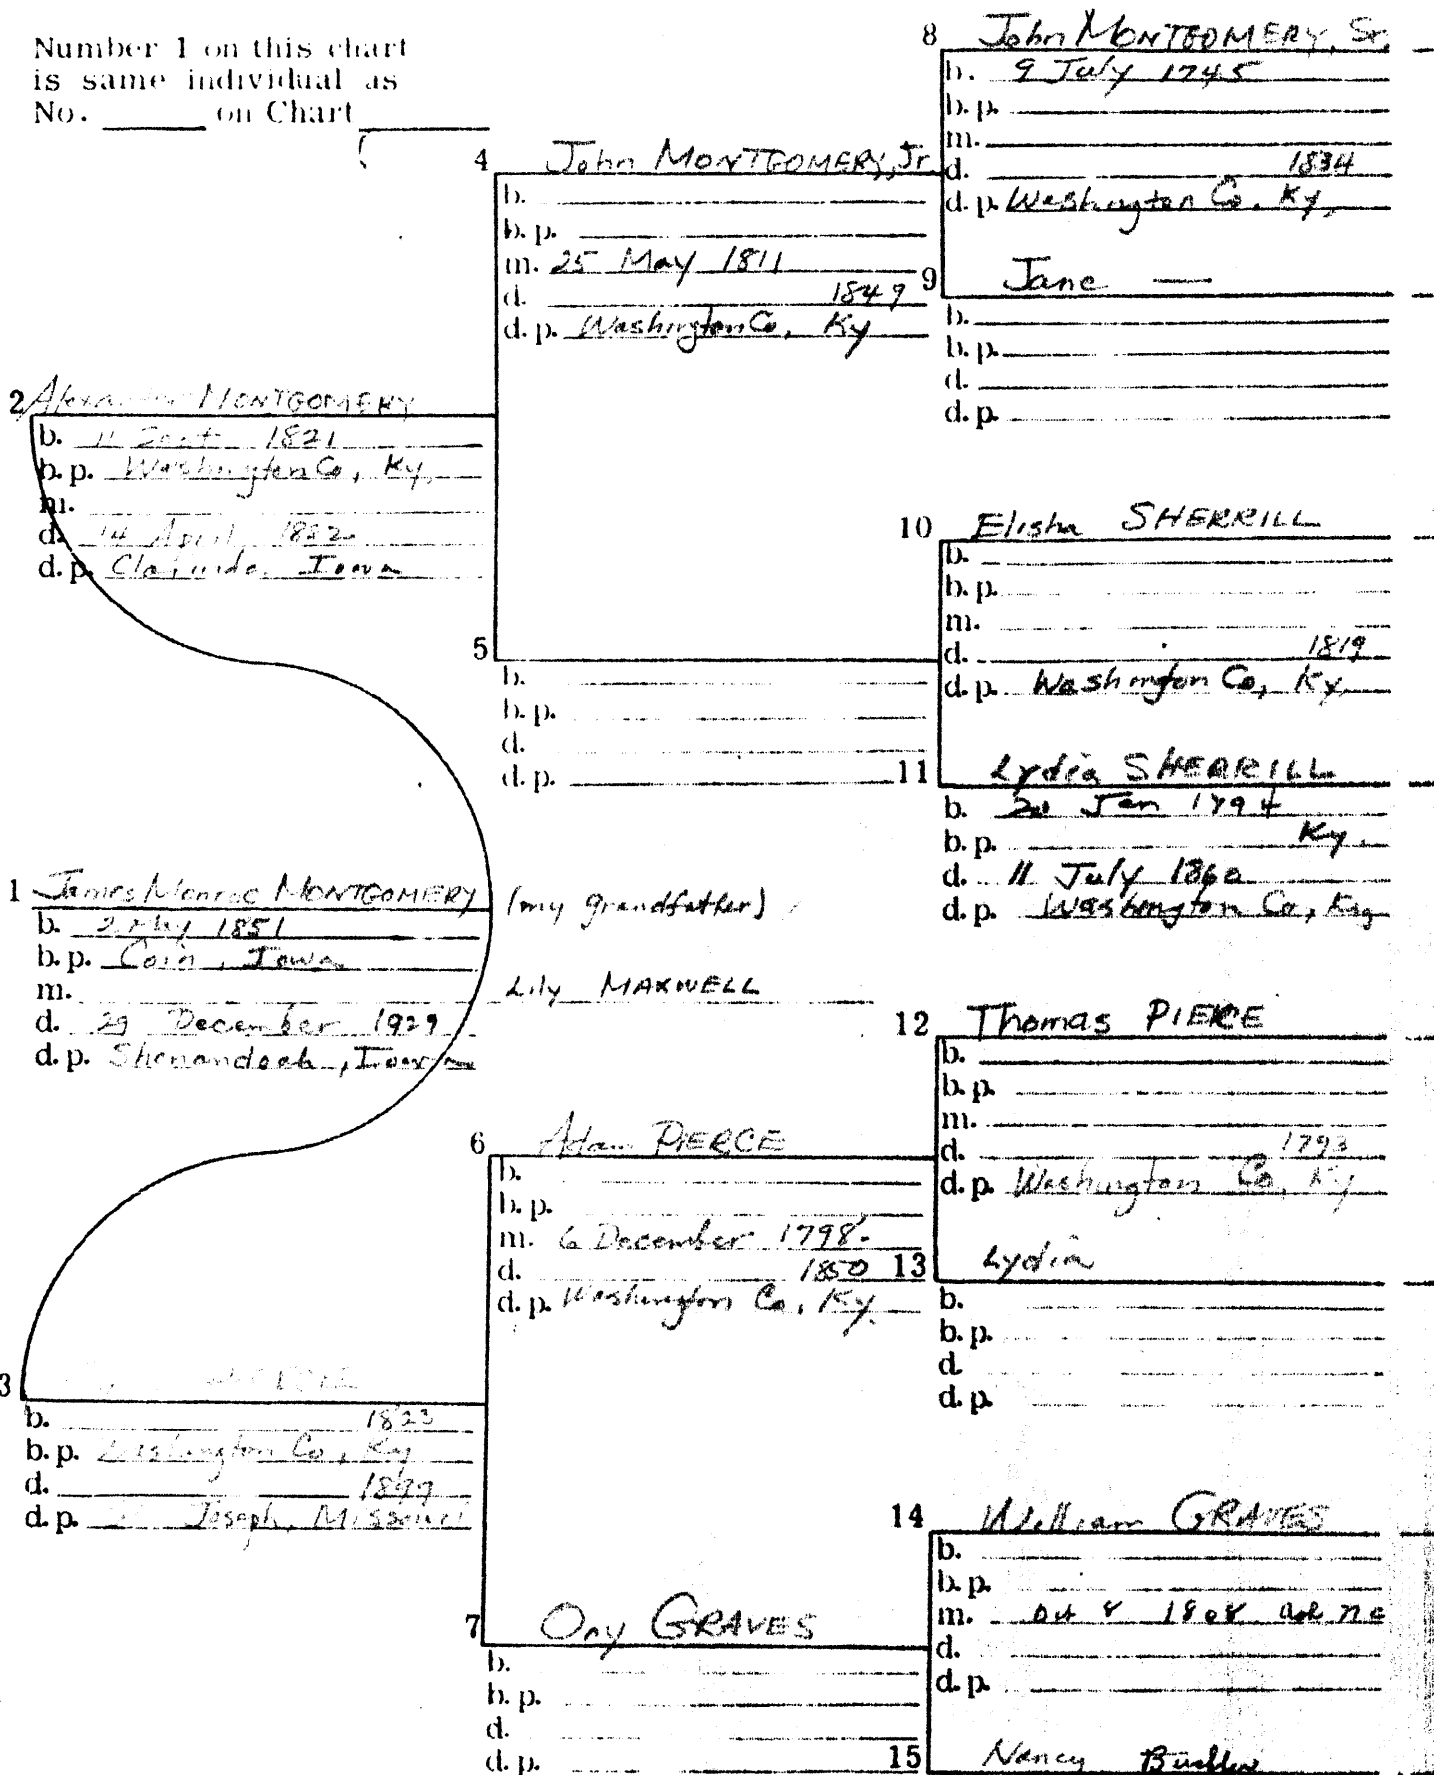 Number 1 on this chart
is same individual as
No. ______ on Chart ______
1 James Monroe MONTGOMERY (my grandfather)
b. 2 1851
b.p. Coin, Iowa
m. Lily MAXWELL
d. 29 December 1929
d.p. Shenandoah, Iowa
2 MONTGOMERY
b. 11 Sept 1821
b.p. Washington Co, Ky,
m.
d. 14 April
d.p. Iowa
3
b. 1823
b.p. Washington Co, Ky
d.
d.p. Joseph, Missouri
4 John MONTGOMERY, Jr.
b.
b.p.
m. 25 May 1811
d. 1849
d.p. Washington Co, Ky
5
b.
b.p.
d.
d.p.
6 Adam PIERCE
b.
b.p.
m. 6 December 1798.
d. 1850
d.p. Washington Co, Ky.
7 Ony GRAVES
b.
b.p.
d.
d.p.
8 John MONTGOMERY, Sr.
b. 9 July 1745
b.p.
m.
d. 1834
d.p. Washington Co. Ky,
9 Jane —
b.
b.p.
d.
d.p.
10 Elisha SHERRILL
b.
b.p.
m.
d. 1819
d.p. Washington Co, Ky,
11 Lydia SHERRILL
b. Jan 1794
b.p. Ky.
d. 11 July 1860
d.p. Washington Co, Ky
12 Thomas PIERCE
b.
b.p.
m.
d. 1793
d.p. Washington Co, Ky
13 Lydia
b.
b.p.
d.
d.p.
14 William GRAVES
b.
b.p.
m. Oct 8 1808
d.
d.p.
15 Nancy